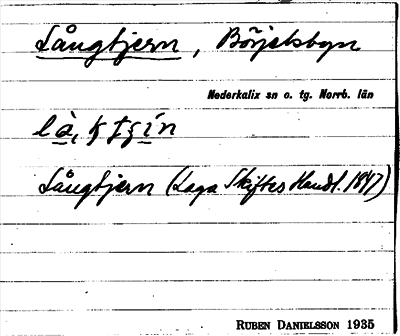 Långtjern, Börjelsbyn
Nederkalix sn o. tg. Norrb. län
Långtjern (Laga Skiftes Handl. 1847)
RUBEN DANIELSSON 1935